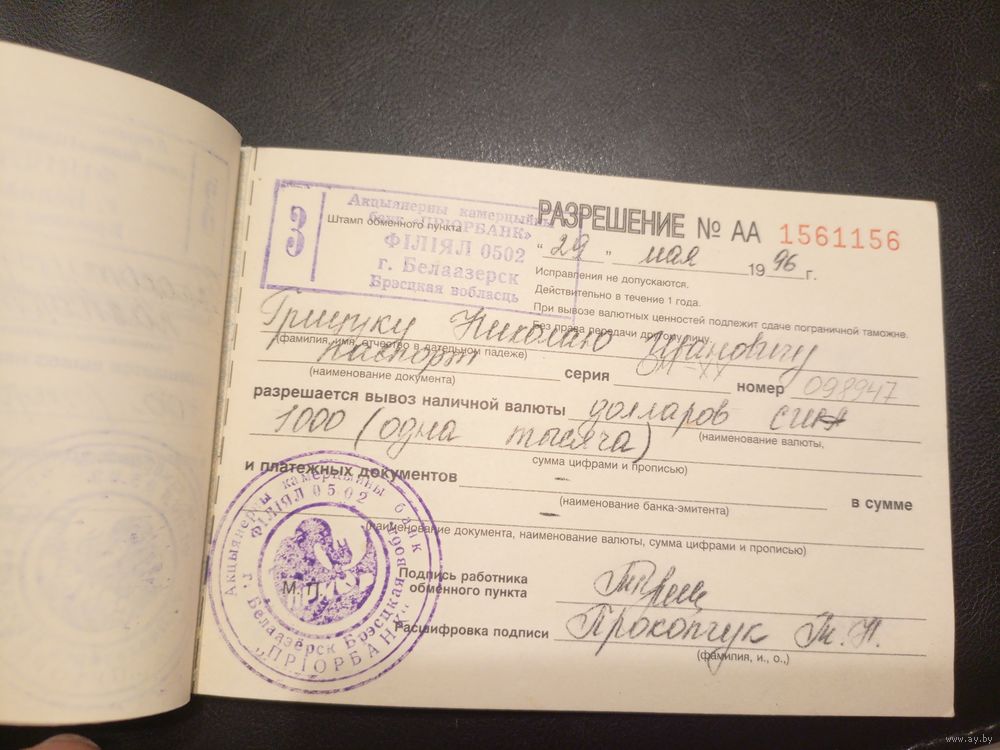 3
Акцыянерны камерцыйны
банк «ПРІОРБАНК»
ФІЛІЯЛ 0502
г. Белаазерск
Брэсцкая вобласць
Штамп обменного пункта
РАЗРЕШЕНИЕ № АА 1561156
"29" мая 1996 г.
Исправления не допускаются.
Действительно в течение 1 года.
При вывозе валютных ценностей подлежит сдаче пограничной таможне.
Без права передачи другому лицу.
Грицуку Николаю Ивановичу
(фамилия, имя, отчество в дательном падеже)
паспорт серия номер 098947
(наименование документа)
разрешается вывоз наличной валюты долларов США
(наименование валюты,
1000 (одна тысяча)
сумма цифрами и прописью)
и платежных документов – в сумме
(наименование банка-эмитента)
–
(наименование документа, наименование валюты, сумма цифрами и прописью)
Акцыянерны камерцыйны банк
ФІЛІЯЛ 05.02
г. Белаазёрск Брэсцкая вобл.
"ПРІОРБАНК"
М.П.
Подпись работника
обменного пункта
Расшифровка подписи Прокопчук Т. Н.
(фамилия, и., о.,)
www.ay.by